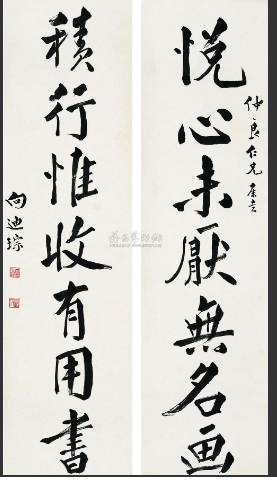 悦心未厭無名画
仲良仁兄
積行惟收有用書
向迪琮